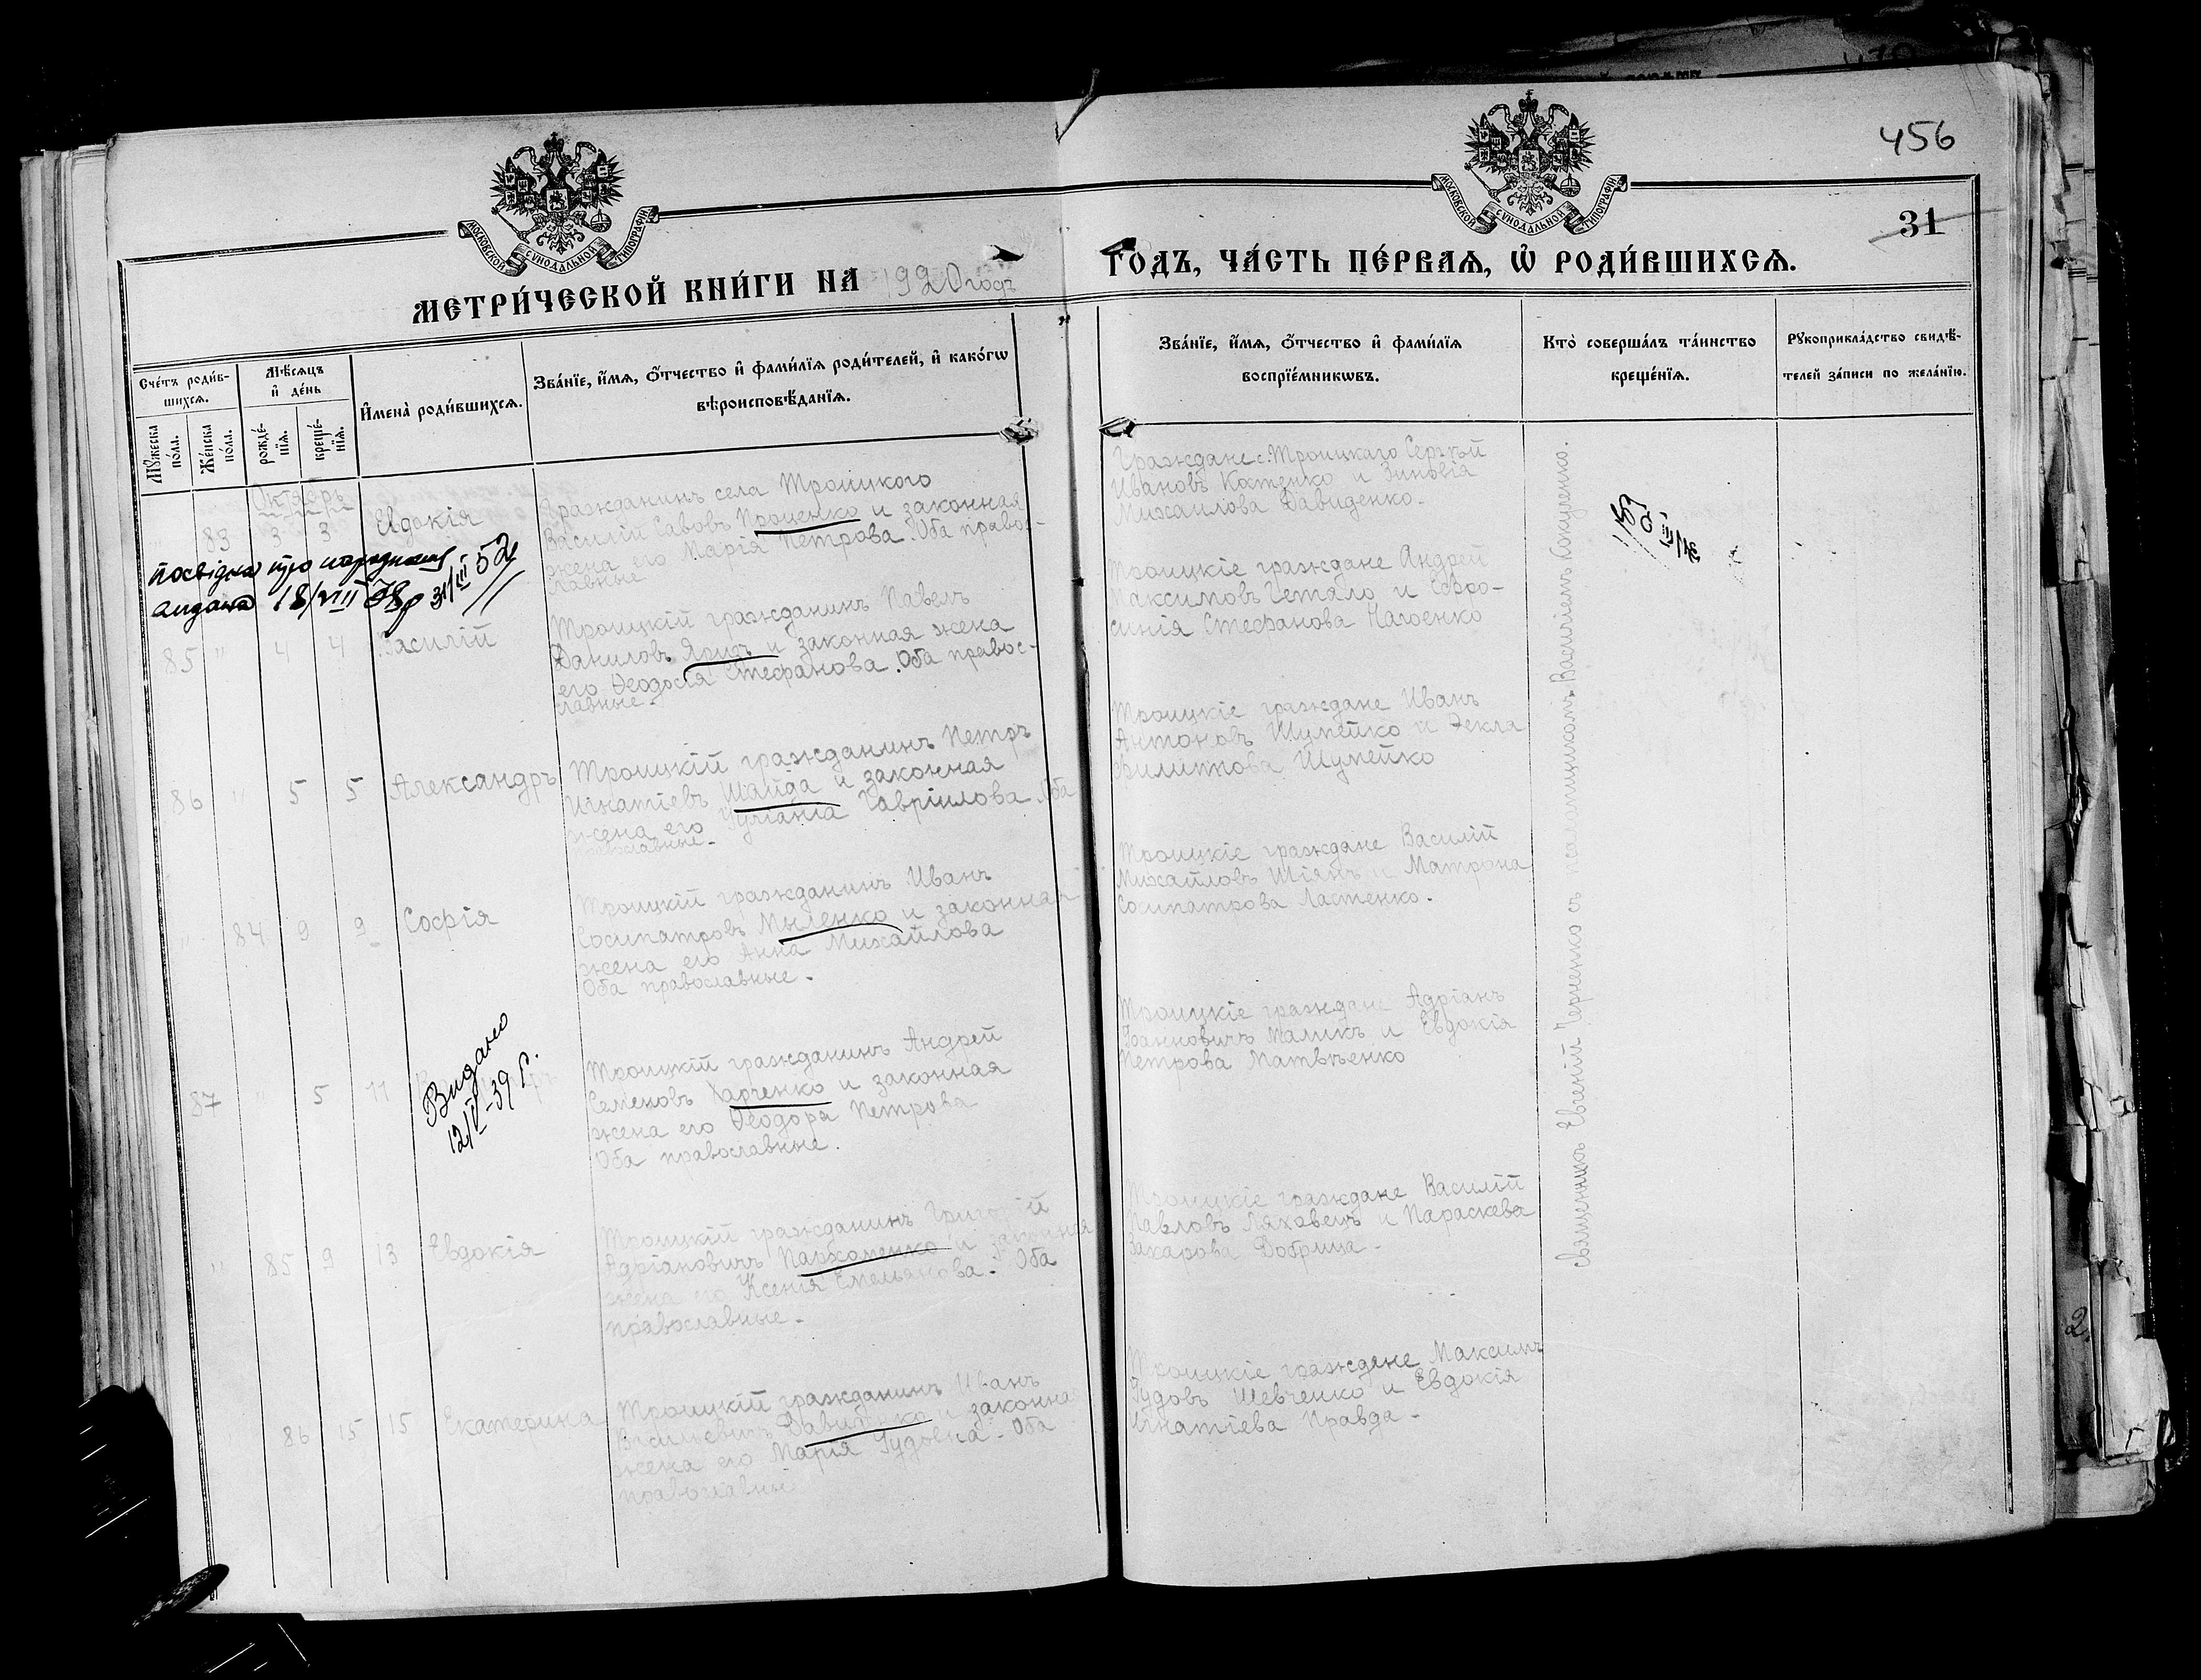 456
31
МОСКОВСКОЙ СѴНОДАЛЬНОЙ ТИПОГРАФІИ
МОСКОВСКОЙ СѴНОДАЛЬНОЙ ТИПОГРАФІИ
МЕТРИ́ЧЕСКОЙ КНИ́ГИ НА 1920 годъ
ГОДЪ, ЧА́СТЬ ПЕ́РВАѦ, Ѡ҆ РОДИ́ВШИХСѦ.
Сче́тъ роди́в-
шихсѧ.
Мꙋ́жеска по́ла.
Же́нска по́ла.
Мѣ́сѧцъ
и҆ де́нь
рожде́-
нїѧ.
креще́-
нїѧ.
И҆мена̀ роди́вшихсѧ.
Зва́нїе, и҆́мѧ, ѻ҆́тчество и҆ фами́лїѧ роди́телей, и҆ како́гѡ
вѣроисповѣ́данїѧ.
Зва́нїе, и҆́мѧ, ѻ҆́тчество и҆ фами́лїѧ
воспрїе́мникѡвъ.
Кто̀ соверша́лъ та́инство
креще́нїѧ.
Рꙋкоприкла́дство свидѣ́-
телей за́писи по жела́нїю.
Октябрь
83 3 3 Евдокія
Гражданинъ села Троицкого
Василій Савовъ Проценко и законная
жена его Марія Петрова. Оба правос-
лавные
Граждане с. Троицкаго Сергѣй
Ивановъ Костенко и Зиновія
Михаилова Давиденко.
про народження
видана 18/VIII 38р 31/III 52
85 " 4 4 Василій
Троицкій гражданинъ Павелъ
Даниловъ и законная жена
его Ѳеодосія Стефанова. Оба правос-
лавные.
Троицкіе граждане Андрей
Максимовъ Гетало и Евфро-
синія Стефанова Нагоенко
86 " 5 5 Александръ
Троицкій гражданинъ Петръ
Игнатіевъ Шайда и законная
жена его Іуліанія Гавріилова. Оба
православные.
Троицкіе граждане Иванъ
Антоновъ Шумейко и Ѳекла
Филиппова Шумейко
" 84 9 9 Софія
Троицкій гражданинъ Иванъ
Сосипатровъ Мыленко и законная
жена его Анна Михайлова
Оба православные.
Троицкіе граждане Василій
Михайловъ Шіянъ и Матрона
Сосипатрова Ластенко.
87 " 5 11
Видано
12/IV-39 г.
Троицкій гражданинъ Андрей
Семеновъ Харченко и законная
жена его Ѳеодора Петрова
Оба православные.
Троицкіе граждане Адріанъ
Іоанновичъ Маликъ и Евдокія
Петрова Матвѣенко
" 85 9 13 Евдокія
Троицкій гражданинъ Григорій
Адріановичъ Пархоменко и законная
жена его Ксенія Емельянова. Оба
православные.
Троицкіе граждане Василій
Павловъ Ляховецъ и Параскева
Захарова Добрица.
86 15 15 Екатерина
Троицкій гражданинъ Иванъ
Васильевичъ Давиденко и законная
жена его Марія Іудовна. Оба
православные
Троицкіе граждане Максимъ
Іудовъ Шевченко и Евдокія
Игнатіева Правда.
Священникъ Евгеній Черненко съ псаломщикомъ Василіемъ Кокуленко.
2